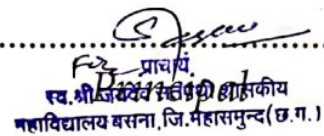 For प्राचार्य
Principal
स्व. श्री जयदेव सतपथी शासकीय
महाविद्यालय बसना, जि.महासमुन्द (छ.ग.)